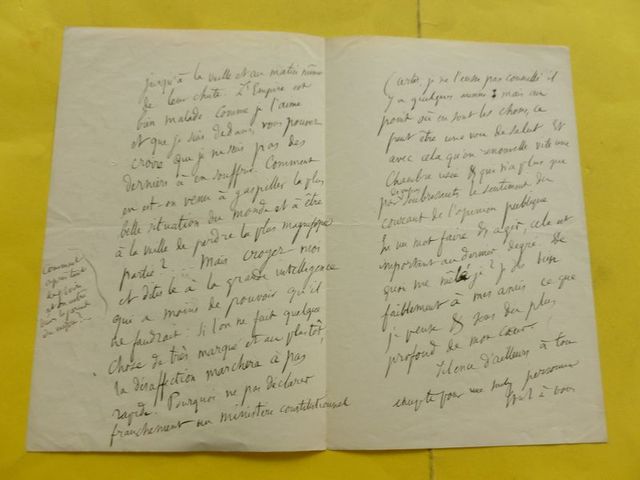 jusqu'à la veille et au matin même
de leur chute. L'Empire est
bien malade. Comme je l'aime
et que je suis dedans, vous pouvez
croire que je ne suis pas des
derniers à en souffrir. Comment
en est-on venu à gaspiller la plus
belle situation du monde et à être
à la veille de perdre la plus magnifique
partie ? ... Mais croyez moi
et dites le à la grande intelligence
qui a moins de pouvoir qu'il
ne faudrait : Si l'on ne fait quelque
chose de très marqué et au plutôt,
la désaffection marchera à pas
rapide. Pourquoi ne pas déclarer
franchement un ministère constitutionnel
Comment
Certes, je ne l'eusse pas conseillé il
y a quelques mois ; mais au
point où en sont les choses, ce
peut être une voie de salut. Et
avec cela qu'on renouvelle vite une
Chambre usée & qui n'a plus que
par soubresauts le sentiment du
courant de l'opinion publique
En un mot faire & agir, cela est
important au dernier degré. De
quoi me mêlé-je ? Je dis bien
faiblement à mes amis ce que
je pense & sens du plus
profond de mon cœur.
Silence d'ailleurs à tout
excepté pour une seule personne
Tout à vous